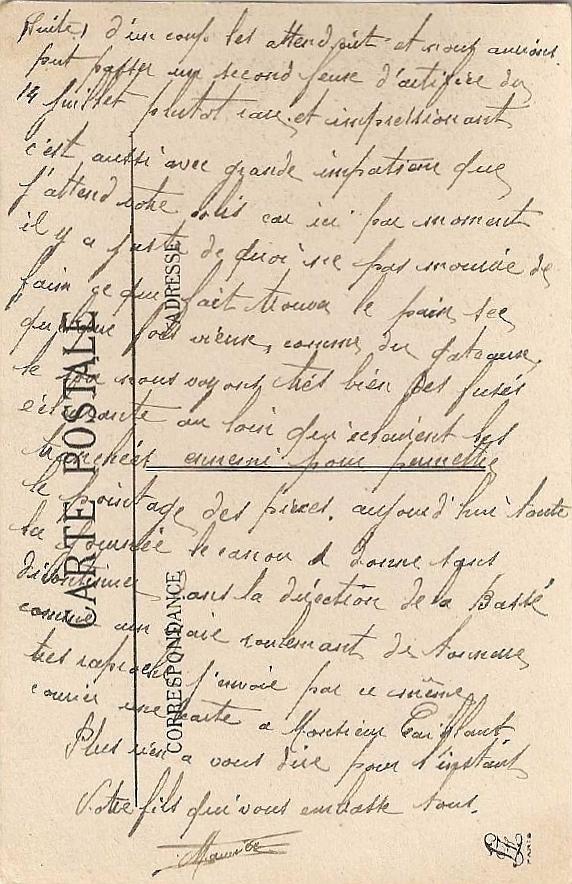 (Suite) d'un coup les attendrit et nous aurions
put passer un second feux d'artifice du
14 Juillet plutot rare et impressionant
c'est aussi avec grande impatience que
j'attend votre colis car ici par moment
il y a juste de quoi ne pas mourire de
faim ce qui fait trouver le pain sec
quelque fois vieux, comme du gateaux,
le soir nous voyons très bien les fusés
éclairante au loin qui éclairent les
tranchées ennemi pour permettre
le pointage des pièces. aujourd'hui toute
la journée le canon a donné sans
discontinuer dans la direction de la Bassé
comme un vraie roulemant de tonnerre
très raproché j'envoie par ce même
courrier une carte a Monsieur Caillaut
Plus rien a vous dire pour l'instant
Votre fils qui vous embrasse tous.
Maurice
CARTE POSTALE
ADRESSE
CORRESPONDANCE
PARIS